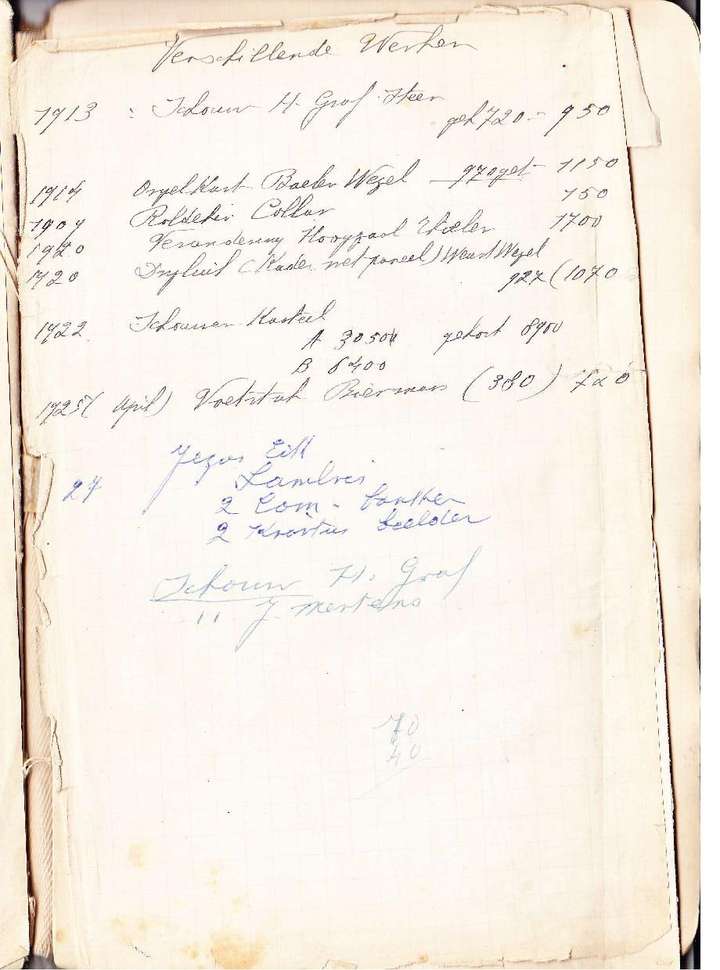 Verschillende Werken
1913 : Schouw H. Graf Heer
geh 720 - 950
1914 Orgel Kast Baeler Wezel 970 get 1150
1909 Collar 750
1920 Verandering 1700
1920 (Kader net paneel) Weust Wezel
927 (1070
1922 Schouwen Kasteel
A 30500 gekost 8900
B 6400
1925 (April) Biermans (380) 720
Jezus Eik
27 Lambris
2 Com - banken
2 Kruistus beelden
Schouw H. Graf
11 J. Mertens
70
40